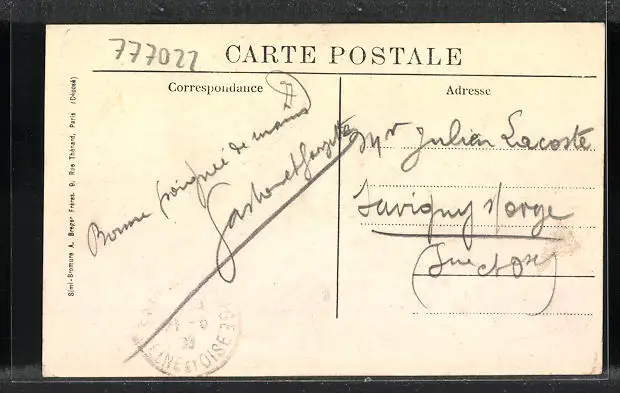 777022
CARTE POSTALE
Correspondance
Adresse
Simi-Bromure A. Breger Frères. 9, Rue Thénard, Paris (Déposé)
Bonne poignée de mains
Gaston et
Mr Julien Lacoste
Savigny s/orge
(Sne et Ose)
SEINE ET OISE